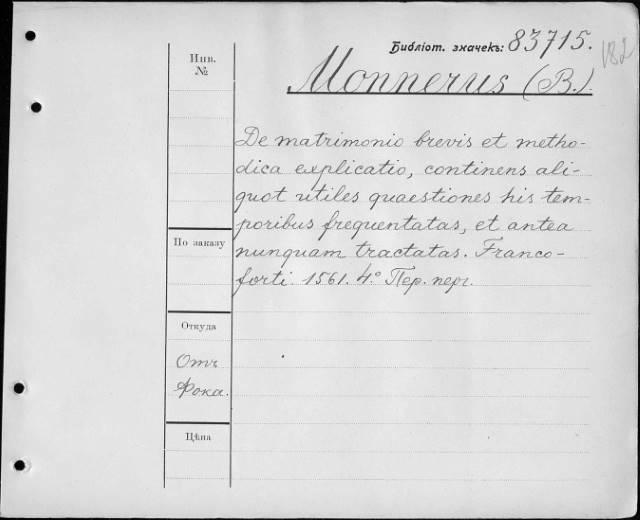 Библіот. значекъ: 83715.
182
Monnerus (B.).
Инв.
№
De matrimonio brevis et metho-
dica explicatio, continens ali-
quot utiles quaestiones his tem-
poribus frequentatas, et antea
nunquam tractatas. Franco-
forti. 1561. 4.° Пер. перг.
По заказу
Откуда
Отъ
Фока.
Цѣна